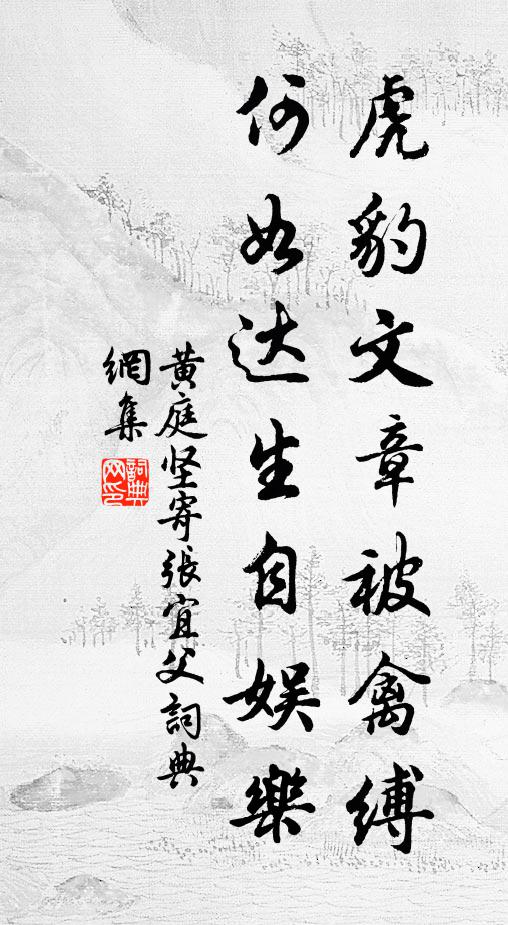 虎豹文章被禽缚
何如达生自娱樂
黄庭坚寄張宜父詞典
網集
詞典网印